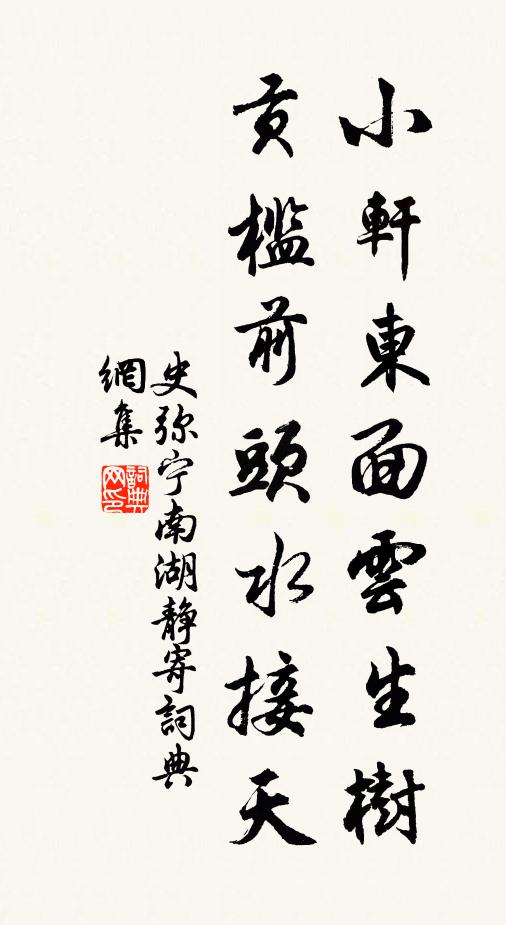 小軒東面雲生樹
貢檻前頭水接天
史弥宁南湖静寄詞典
網集
詞典
网印